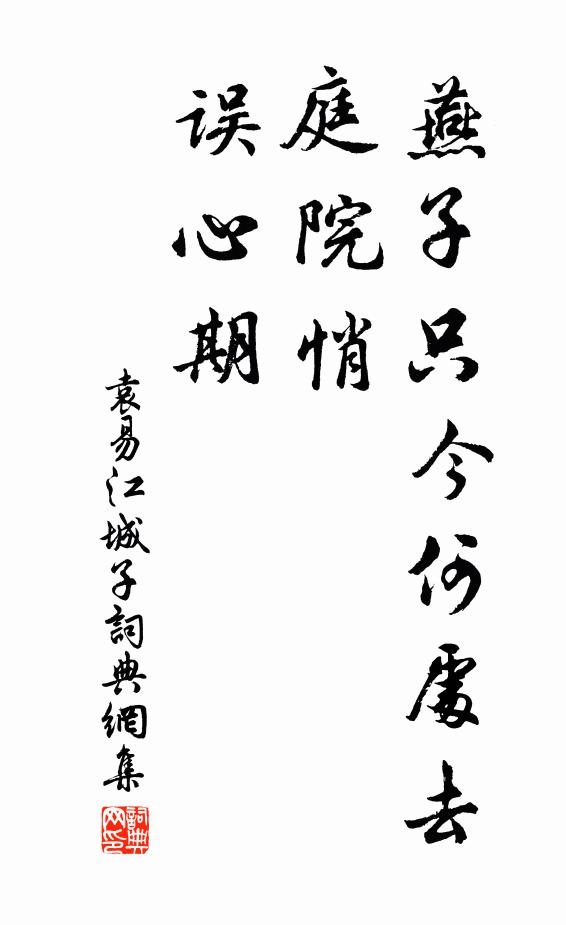 燕子只今何處去
庭院悄
误心期
袁易江城子詞典網集
詞典网印